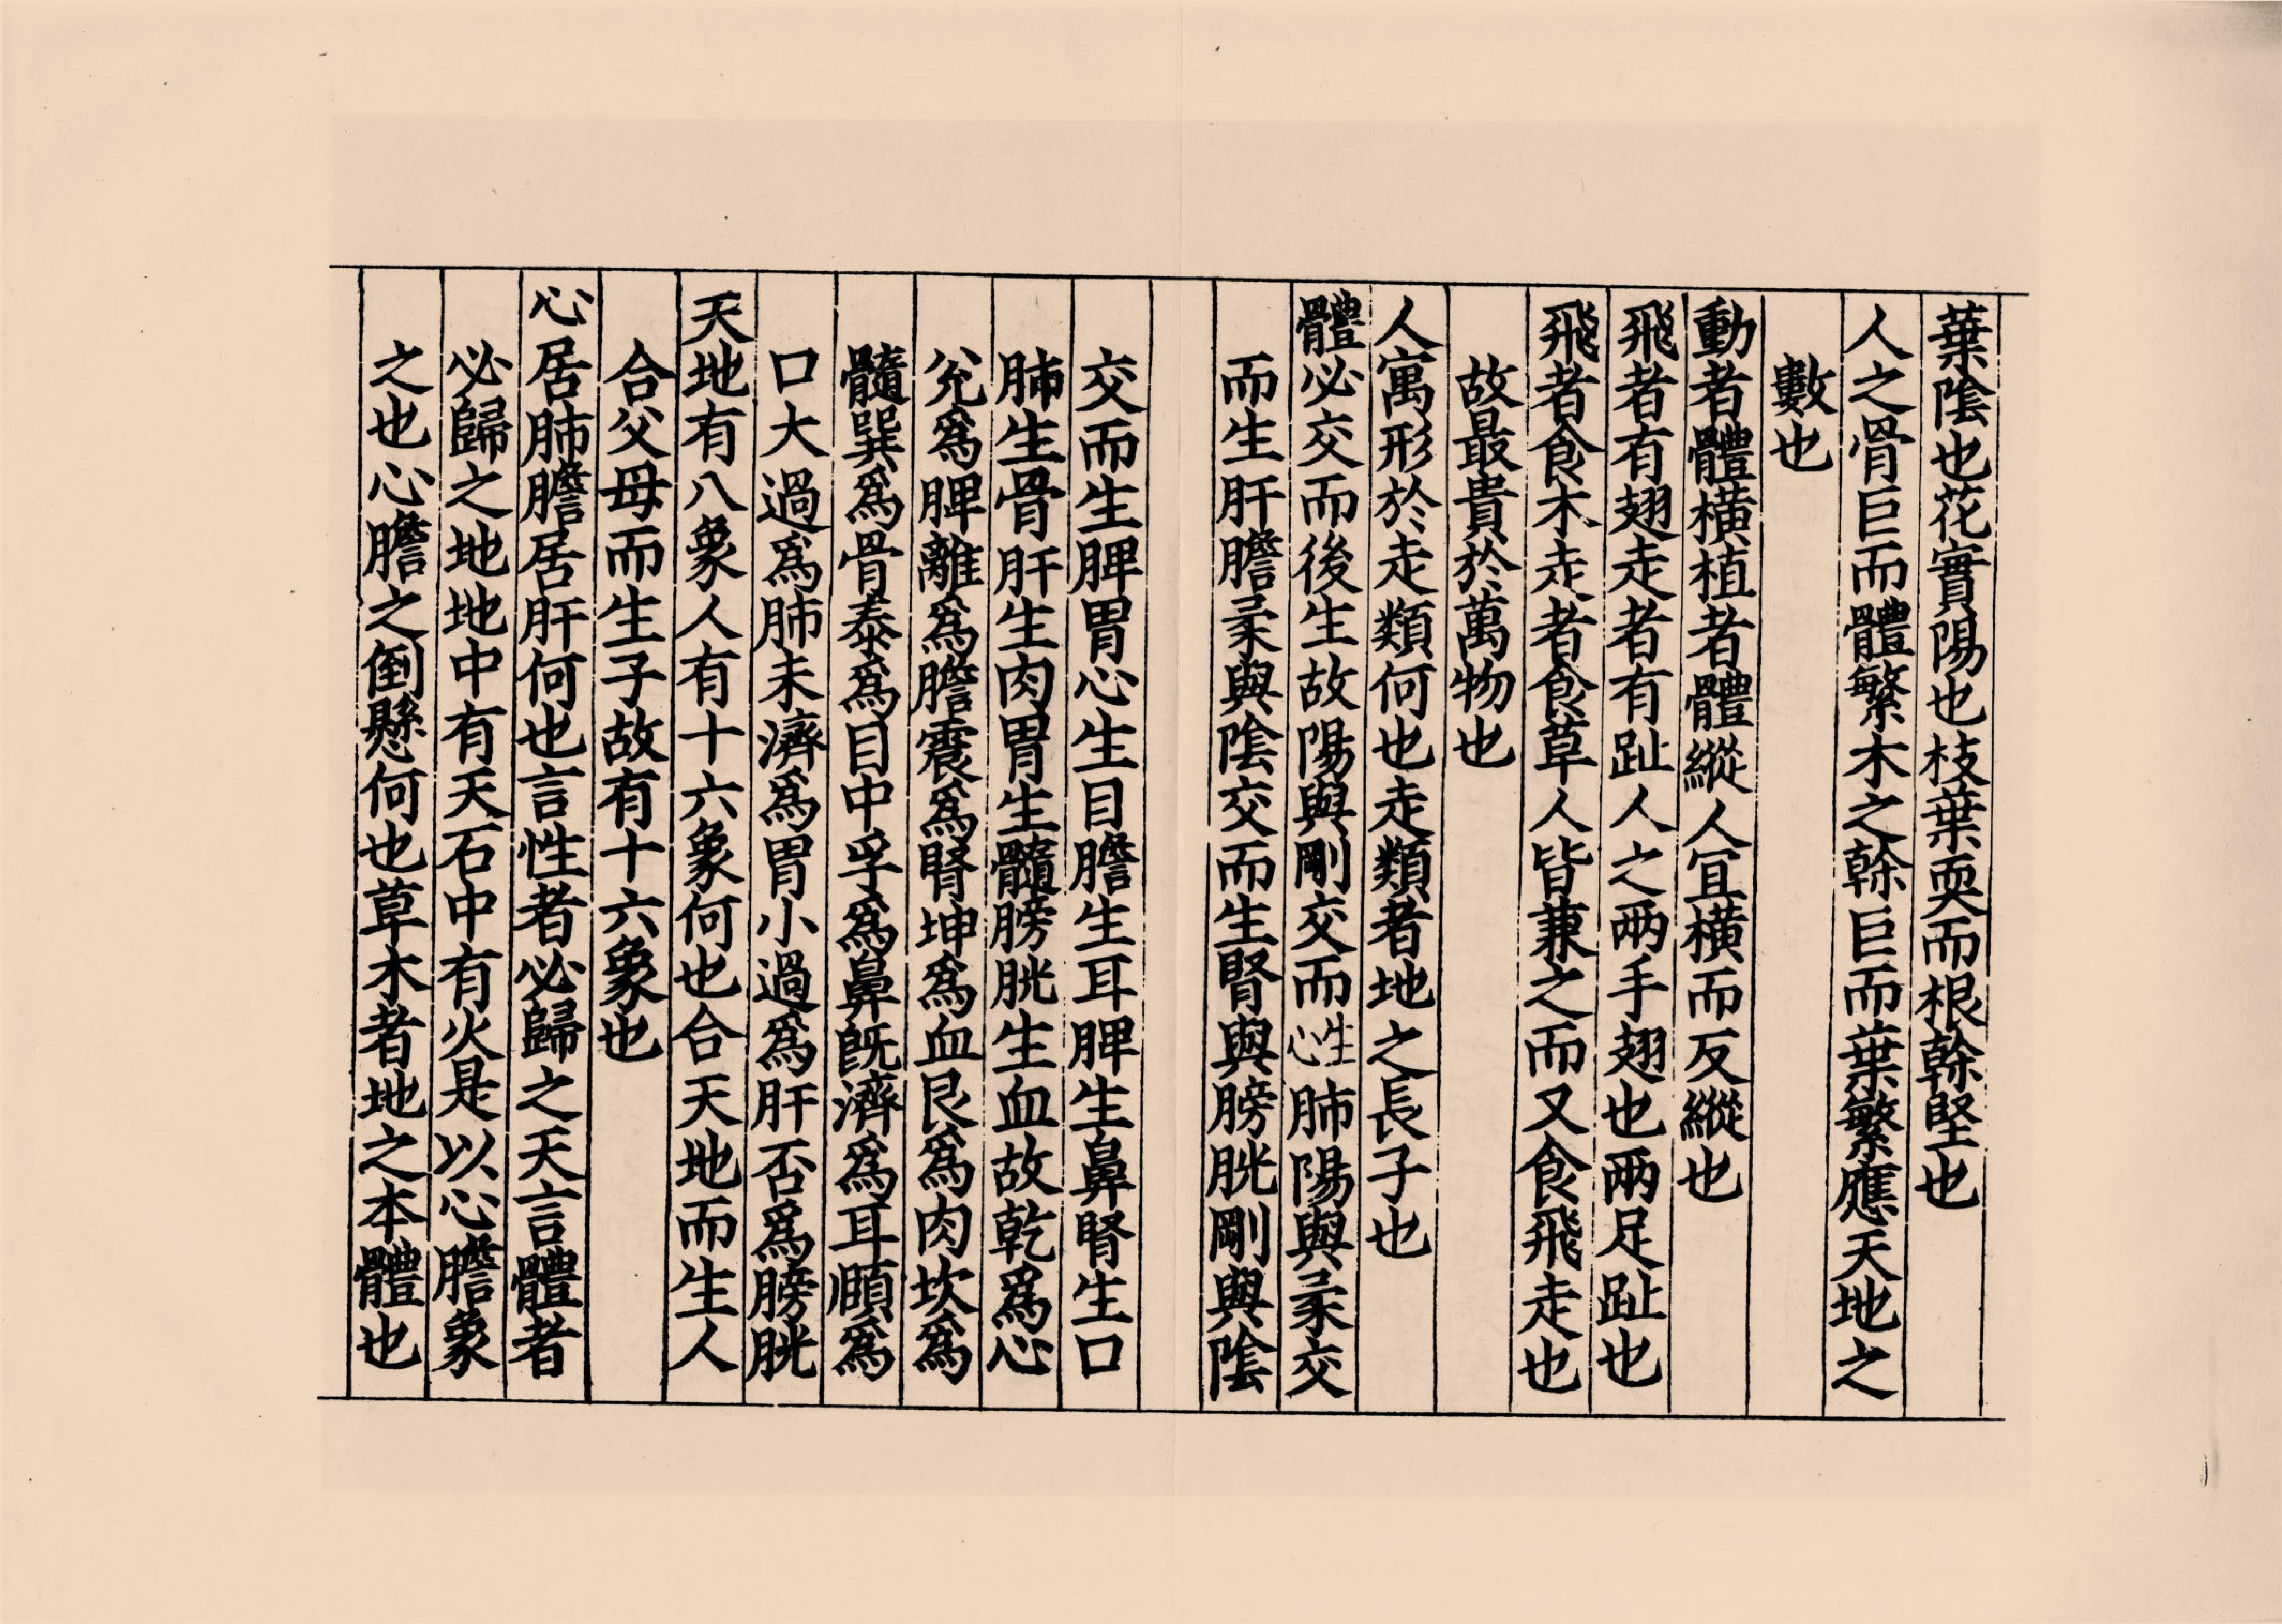 葉陰也花實陽也枝葉耎而根榦堅也
人之骨巨而體繁木之榦巨而葉繁應天地之
數也
動者體橫植者體縱人宜橫而反縱也
飛者有翅走者有趾人之兩手翅也兩足趾也
飛者食木走者食草人皆兼之而又食飛走也
故最貴於萬物也
人寓形於走類何也走類者地之長子也
體必交而後生故陽與剛交而生心肺陽與柔交
而生肝膽柔與陰交而生腎與膀胱剛與陰
交而生脾胃心生目膽生耳脾生鼻腎生口
肺生骨肝生肉胃生髓膀胱生血故乾爲心
兊爲脾離爲膽震爲腎坤爲血艮爲肉坎爲
髓巽爲骨泰爲目中孚爲鼻旣濟爲耳頤爲
口大過爲肺未濟爲胃小過爲肝否爲膀胱
天地有八象人有十六象何也合天地而生人
合父母而生子故有十六象也
心居肺膽居肝何也言性者必歸之天言體者
必歸之地地中有天石中有火是以心膽象
之也心膽之倒懸何也草木者地之本體也